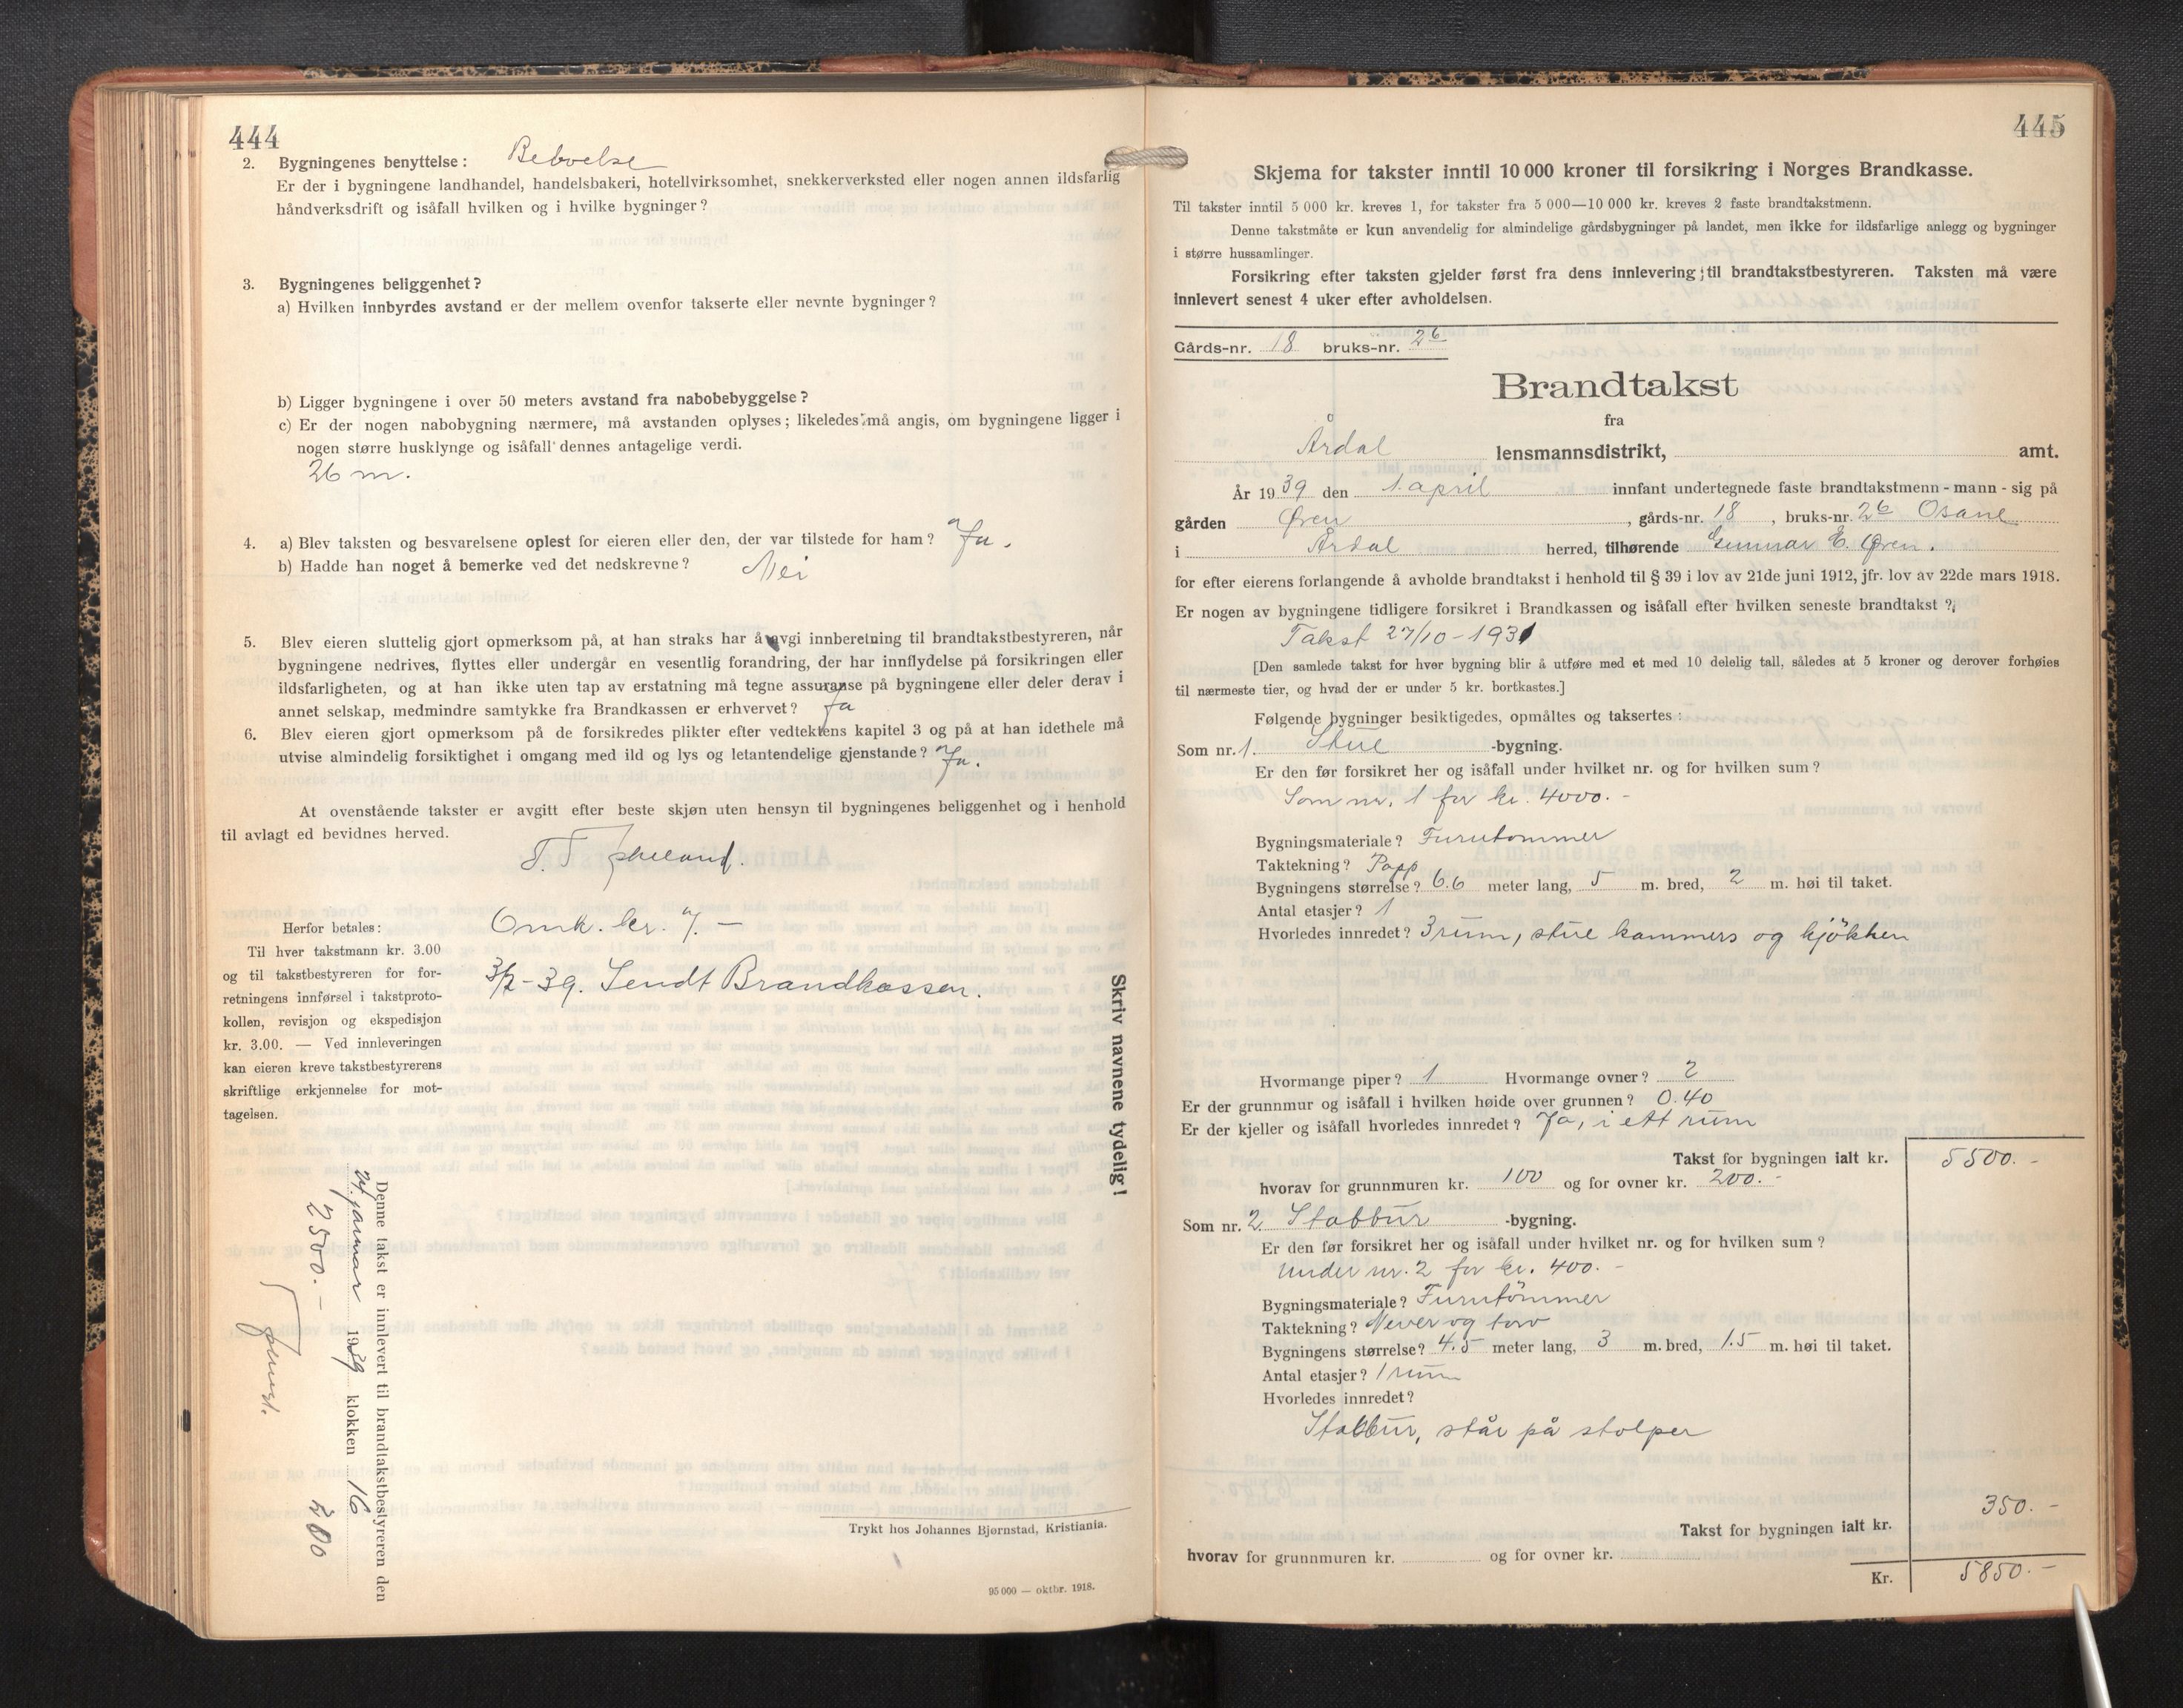 444
2. Bygningenes benyttelse: Beboelse
Er der i bygningene landhandel, handelsbakeri, hotellvirksomhet, snekkerverksted eller nogen annen ildsfarlig
håndverksdrift og isåfall hvilken og i hvilke bygninger?
3. Bygningenes beliggenhet?
a) Hvilken innbyrdes avstand er der mellem ovenfor takserte eller nevnte bygninger?
b) Ligger bygningene i over 50 meters avstand fra nabobebyggelse?
c) Er der nogen nabobygning nærmere, må avstanden oplyses; likeledes må angis, om bygningene ligger i
nogen større husklynge og isåfall dennes antagelige verdi.
26 m.
4. a) Blev taksten og besvarelsene oplest for eieren eller den, der var tilstede for ham? Ja.
b) Hadde han noget å bemerke ved det nedskrevne? Nei
5. Blev eieren sluttelig gjort opmerksom på, at han straks har å avgi innberetning til brandtakstbestyreren, når
bygningene nedrives, flyttes eller undergår en vesentlig forandring, der har innflydelse på forsikringen eller
ildsfarligheten, og at han ikke uten tap av erstatning må tegne assuranse på bygningene eller deler derav i
annet selskap, medmindre samtykke fra Brandkassen er erhvervet? Ja
6. Blev eieren gjort opmerksom på de forsikredes plikter efter vedtektens kapitel 3 og på at han idethele må
utvise almindelig forsiktighet i omgang med ild og lys og letantendelige gjenstande? Ja.
At ovenstående takster er avgitt efter beste skjøn uten hensyn til bygningenes beliggenhet og i henhold
til avlagt ed bevidnes herved.
Herfor betales:
Til hver takstmann kr. 3.00
og til takstbestyreren for for-
retningens innførsel i takstproto-
kollen, revisjon og ekspedisjon
kr. 3.00. — Ved innleveringen
kan eieren kreve takstbestyrerens
skriftlige erkjennelse for mot-
tagelsen.
Omk. kr. 7. –
3/2-39. Sendt Brandkassen.
Skriv navnene tydelig!
Denne takst er innlevert til brandtakstbestyreren den
24. januar 1939 klokken 16
2500. –
200
Trykt hos Johannes Bjørnstad, Kristiania.
95 000 — oktbr. 1918.
445
Skjema for takster inntil 10 000 kroner til forsikring i Norges Brandkasse.
Til takster inntil 5 000 kr. kreves 1, for takster fra 5 000—10 000 kr. kreves 2 faste brandtakstmenn.
Denne takstmåte er kun anvendelig for almindelige gårdsbygninger på landet, men ikke for ildsfarlige anlegg og bygninger
i større hussamlinger.
Forsikring efter taksten gjelder først fra dens innlevering til brandtakstbestyreren. Taksten må være
innlevert senest 4 uker efter avholdelsen.
Gårds-nr. 18 bruks-nr. 26
Brandtakst
fra
Årdal lensmannsdistrikt, amt.
År 1939 den 1. april innfant undertegnede faste brandtakstmenn - mann - sig på
gården Øren, gårds-nr. 18, bruks-nr. 26 Osane
i Årdal herred, tilhørende Gunnar E. Øren.
for efter eierens forlangende å avholde brandtakst i henhold til § 39 i lov av 21de juni 1912, jfr. lov av 22de mars 1918.
Er nogen av bygningene tidligere forsikret i Brandkassen og isåfall efter hvilken seneste brandtakst?
Takst 27/10 - 1931
[Den samlede takst for hver bygning blir å utføre med et med 10 delelig tall, således at 5 kroner og derover forhøies
til nærmeste tier, og hvad der er under 5 kr. bortkastes.]
Følgende bygninger besiktigedes, opmåltes og taksertes:
Som nr. 1. Stue -bygning.
Er den før forsikret her og isåfall under hvilket nr. og for hvilken sum?
Som nr. 1 for kr. 4000. –
Bygningsmateriale? Furutømmer
Taktekning? Papp
Bygningens størrelse? 6.6 meter lang, 5 m. bred, 2 m. høi til taket.
Antal etasjer? 1
Hvorledes innredet? 3 rum, stue kammers og kjökken
Hvormange piper? 1 Hvormange ovner? 2
Er der grunnmur og isåfall i hvilken høide over grunnen? 0.40
Er der kjeller og isåfall hvorledes innredet? Ja, i ett rum
Takst for bygningen ialt kr. 5500. –
hvorav for grunnmuren kr. 100 og for ovner kr. 200. –
Som nr. 2. Stabbur -bygning.
Er den før forsikret her og isåfall under hvilket nr. og for hvilken sum?
under nr. 2 for kr. 400. –
Bygningsmateriale? Furutömmer
Taktekning? Never og torv
Bygningens størrelse? 4.5 meter lang, 3 m. bred, 1.5 m. høi til taket.
Antal etasjer? 1 rum
Hvorledes innredet?
Stabbur, står på stolper
350. –
Takst for bygningen ialt kr.
hvorav for grunnmuren kr. og for ovner kr.
Kr. 5850. –